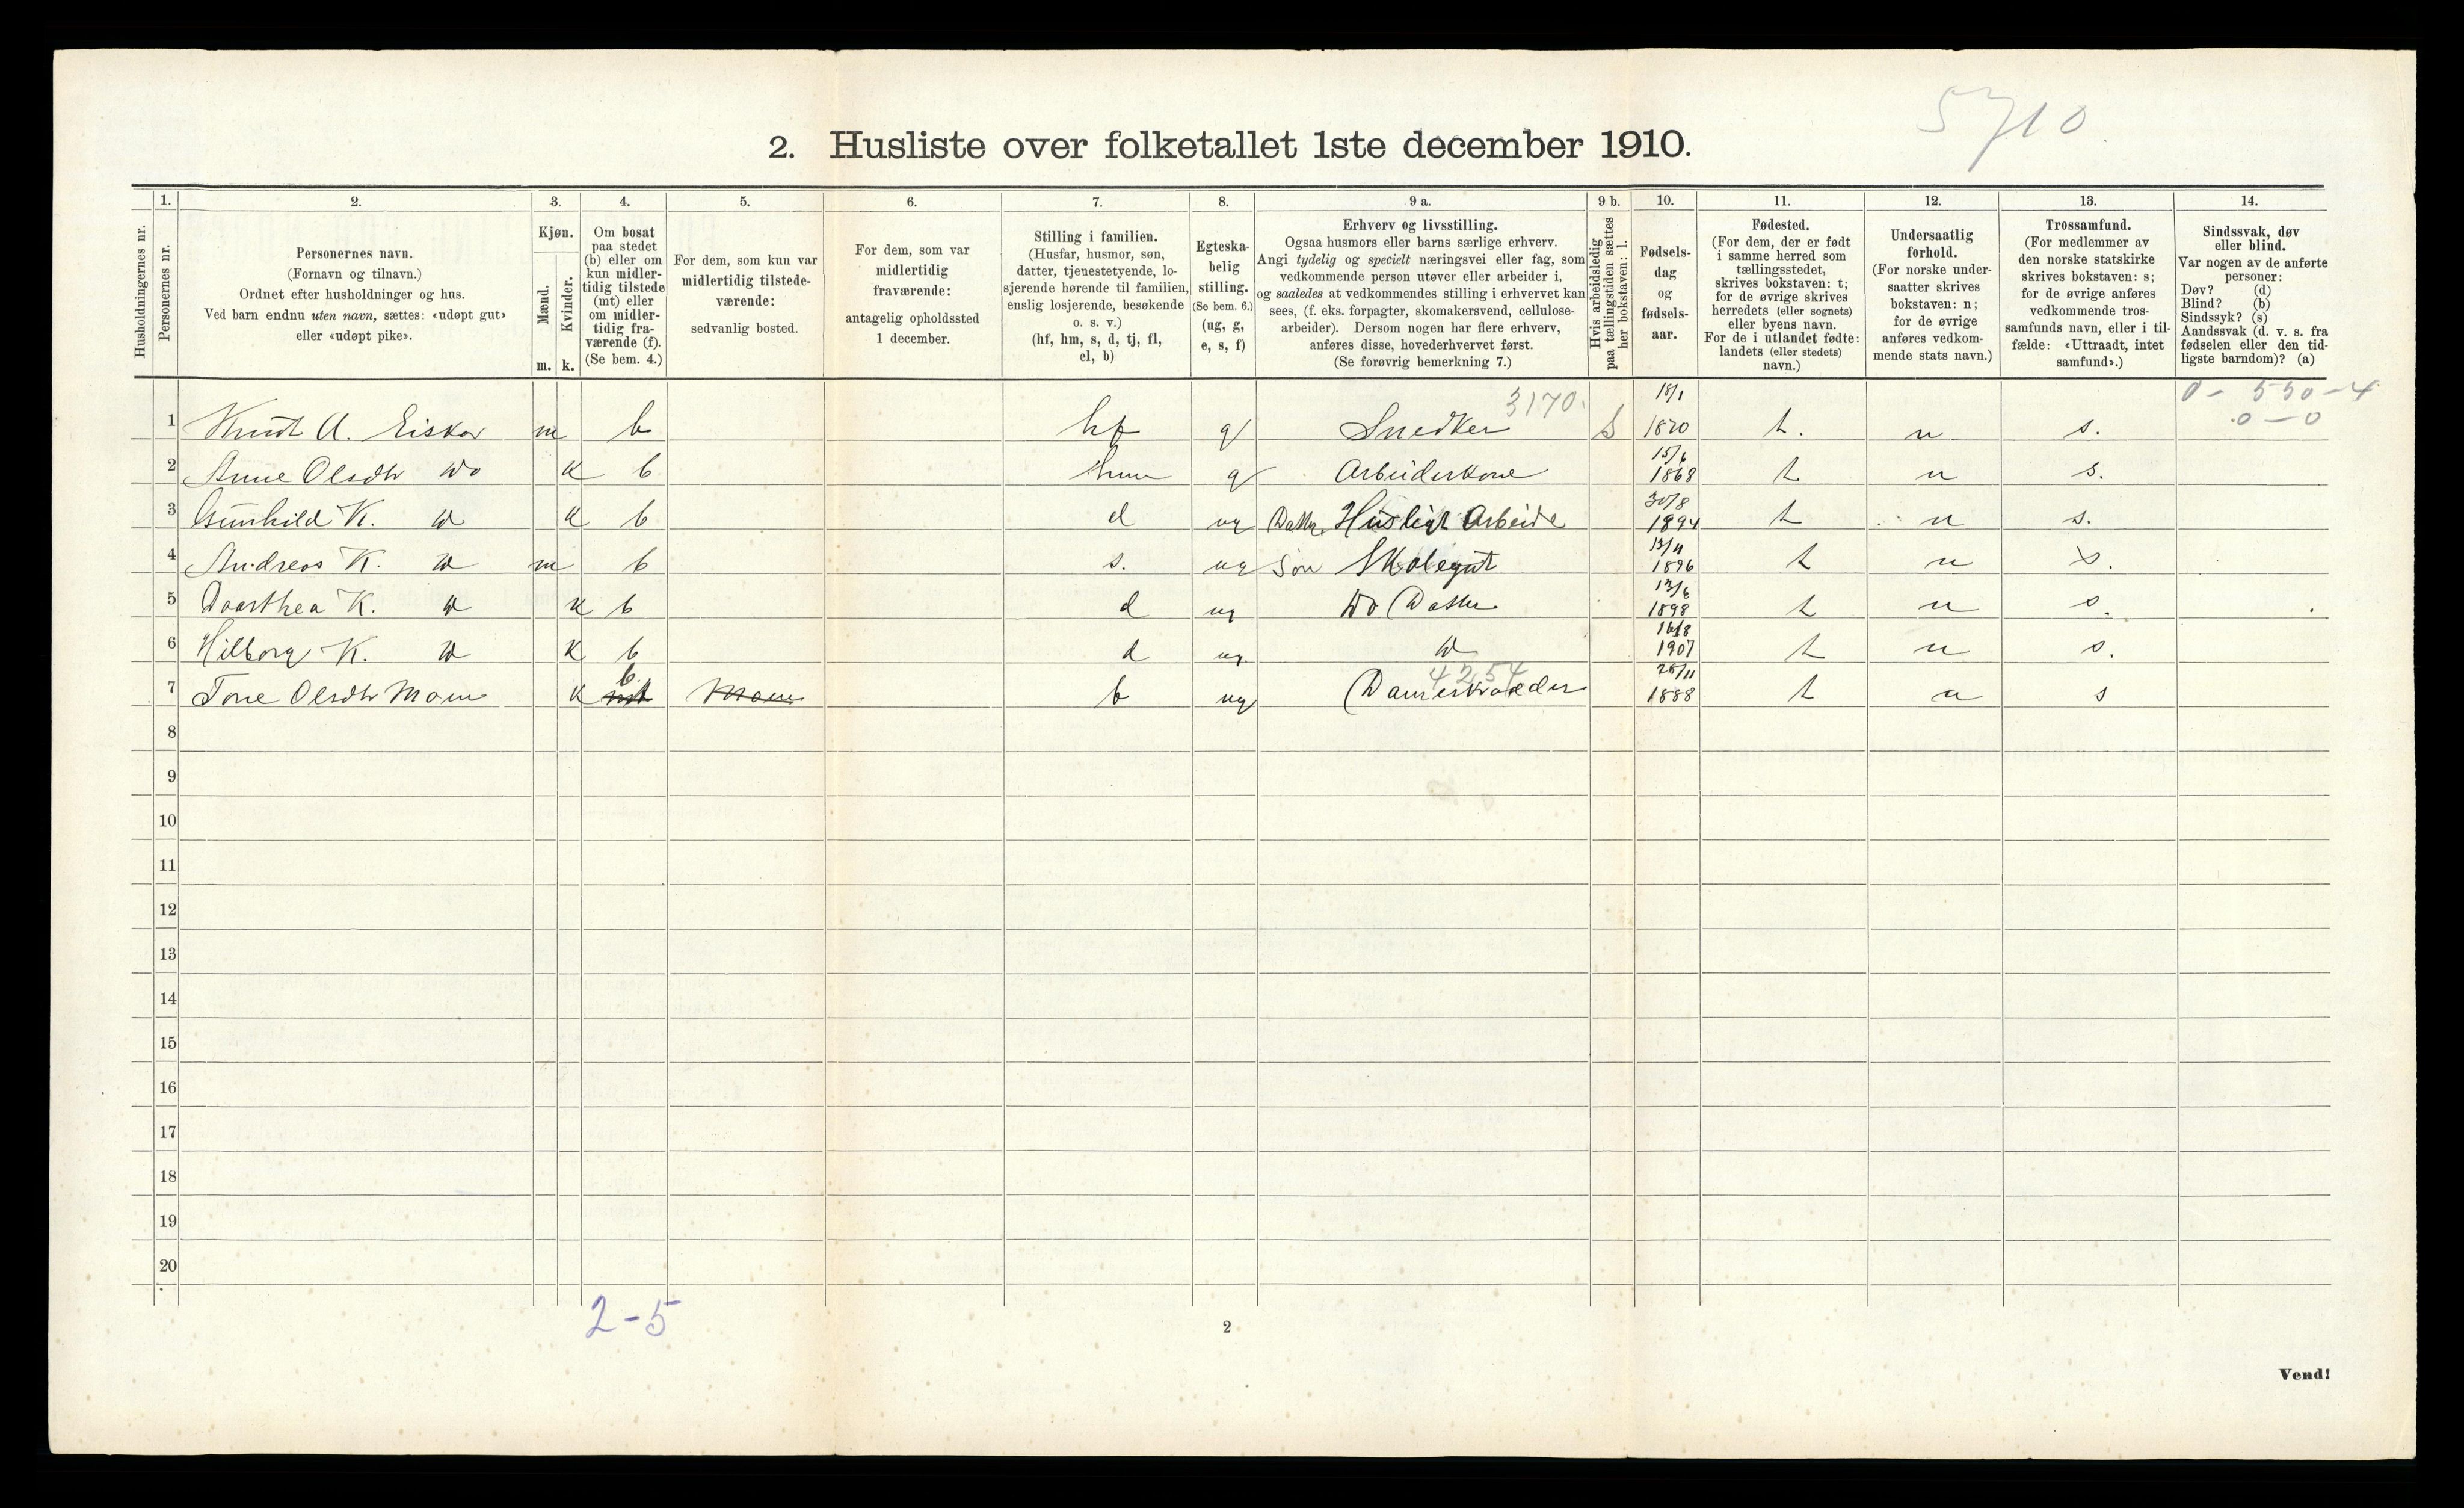 5710
2. Husliste over folketallet 1ste december 1910.
1. 2. 3. 4. 5. 6. 7. 8. 9 a. 9 b. 10. 11. 12. 13. 14.
Husholdningernes nr.
Personernes nr.
Personernes navn.
(Fornavn og tilnavn.)
Ordnet efter husholdninger og hus.
Ved barn endnu uten navn, sættes: «udøpt gut»
eller «udøpt pike».
Kjøn.
Mænd.
Kvinder.
m. k.
Om bosat
paa stedet
(b) eller om
kun midler-
tidig tilstede
(mt) eller
om midler-
tidig fra-
værende (f).
(Se bem. 4.)
For dem, som kun var
midlertidig tilstede-
værende:
sedvanlig bosted.
For dem, som var
midlertidig
fraværende:
antagelig opholdssted
1 december.
Stilling i familien.
(Husfar, husmor, søn,
datter, tjenestetyende, lo-
sjerende hørende til familien,
enslig losjerende, besøkende
o. s. v.)
(hf, hm, s, d, tj, fl,
el, b)
Egteska-
belig
stilling.
(Se bem. 6.)
(ug, g,
e, s, f)
Erhverv og livsstilling.
Ogsaa husmors eller barns særlige erhverv.
Angi tydelig og specielt næringsvei eller fag, som
vedkommende person utøver eller arbeider i,
og saaledes at vedkommendes stilling i erhvervet kan
sees, (f. eks. forpagter, skomakersvend, cellulose-
arbeider). Dersom nogen har flere erhverv,
anføres disse, hovederhvervet først.
(Se forøvrig bemerkning 7.)
Hvis arbeidsledig
paa tællingstiden sættes
her bokstaven: l.
Fødsels-
dag
og
fødsels-
aar.
Fødested.
(For dem, der er født
i samme herred som
tællingsstedet,
skrives bokstaven: t;
for de øvrige skrives
herredets (eller sognets)
eller byens navn.
For de i utlandet fødte:
landets (eller stedets)
navn.)
Undersaatlig
forhold.
(For norske under-
saatter skrives
bokstaven: n;
for de øvrige
anføres vedkom-
mende stats navn.)
Trossamfund.
(For medlemmer av
den norske statskirke
skrives bokstaven: s;
for de øvrige anføres
vedkommende tros-
samfunds navn, eller i til-
fælde: «Uttraadt, intet
samfund».)
Sindssvak, døv
eller blind.
Var nogen av de anførte
personer:
Døv? (d)
Blind? (b)
Sindssyk? (s)
Aandssvak (d. v. s. fra
fødselen eller den tid-
ligste barndom)? (a)
3170. 18/1 0 - 550 - 4
0 - 0
1 Knut A. Eiskor m b hf g Snedker 1870 t. n s.
15/6
2 Anne Olsdtr do k b hm g Arbeiderkone 1868 t n s.
30/8
3 Gunhild K. do k b d ug Datter Husligt Arbeide 1894 t n s.
13/11
4 Andreas K. do m b s. ug Søn Skolegut 1896 t n s.
13/6
5 Doorthea K. do k b d ug do Datter 1898 t n s.
16/8
6 Hilborg K. do k b d ug. do 1907 t n s.
b. 4254 28/11
7 Tone Olsdtr Moen k mt Moen b ug Dameskrædder 1888 t n s
8
9
10
11
12
13
14
15
16
17
18
19
20
2-5
2
Vend!